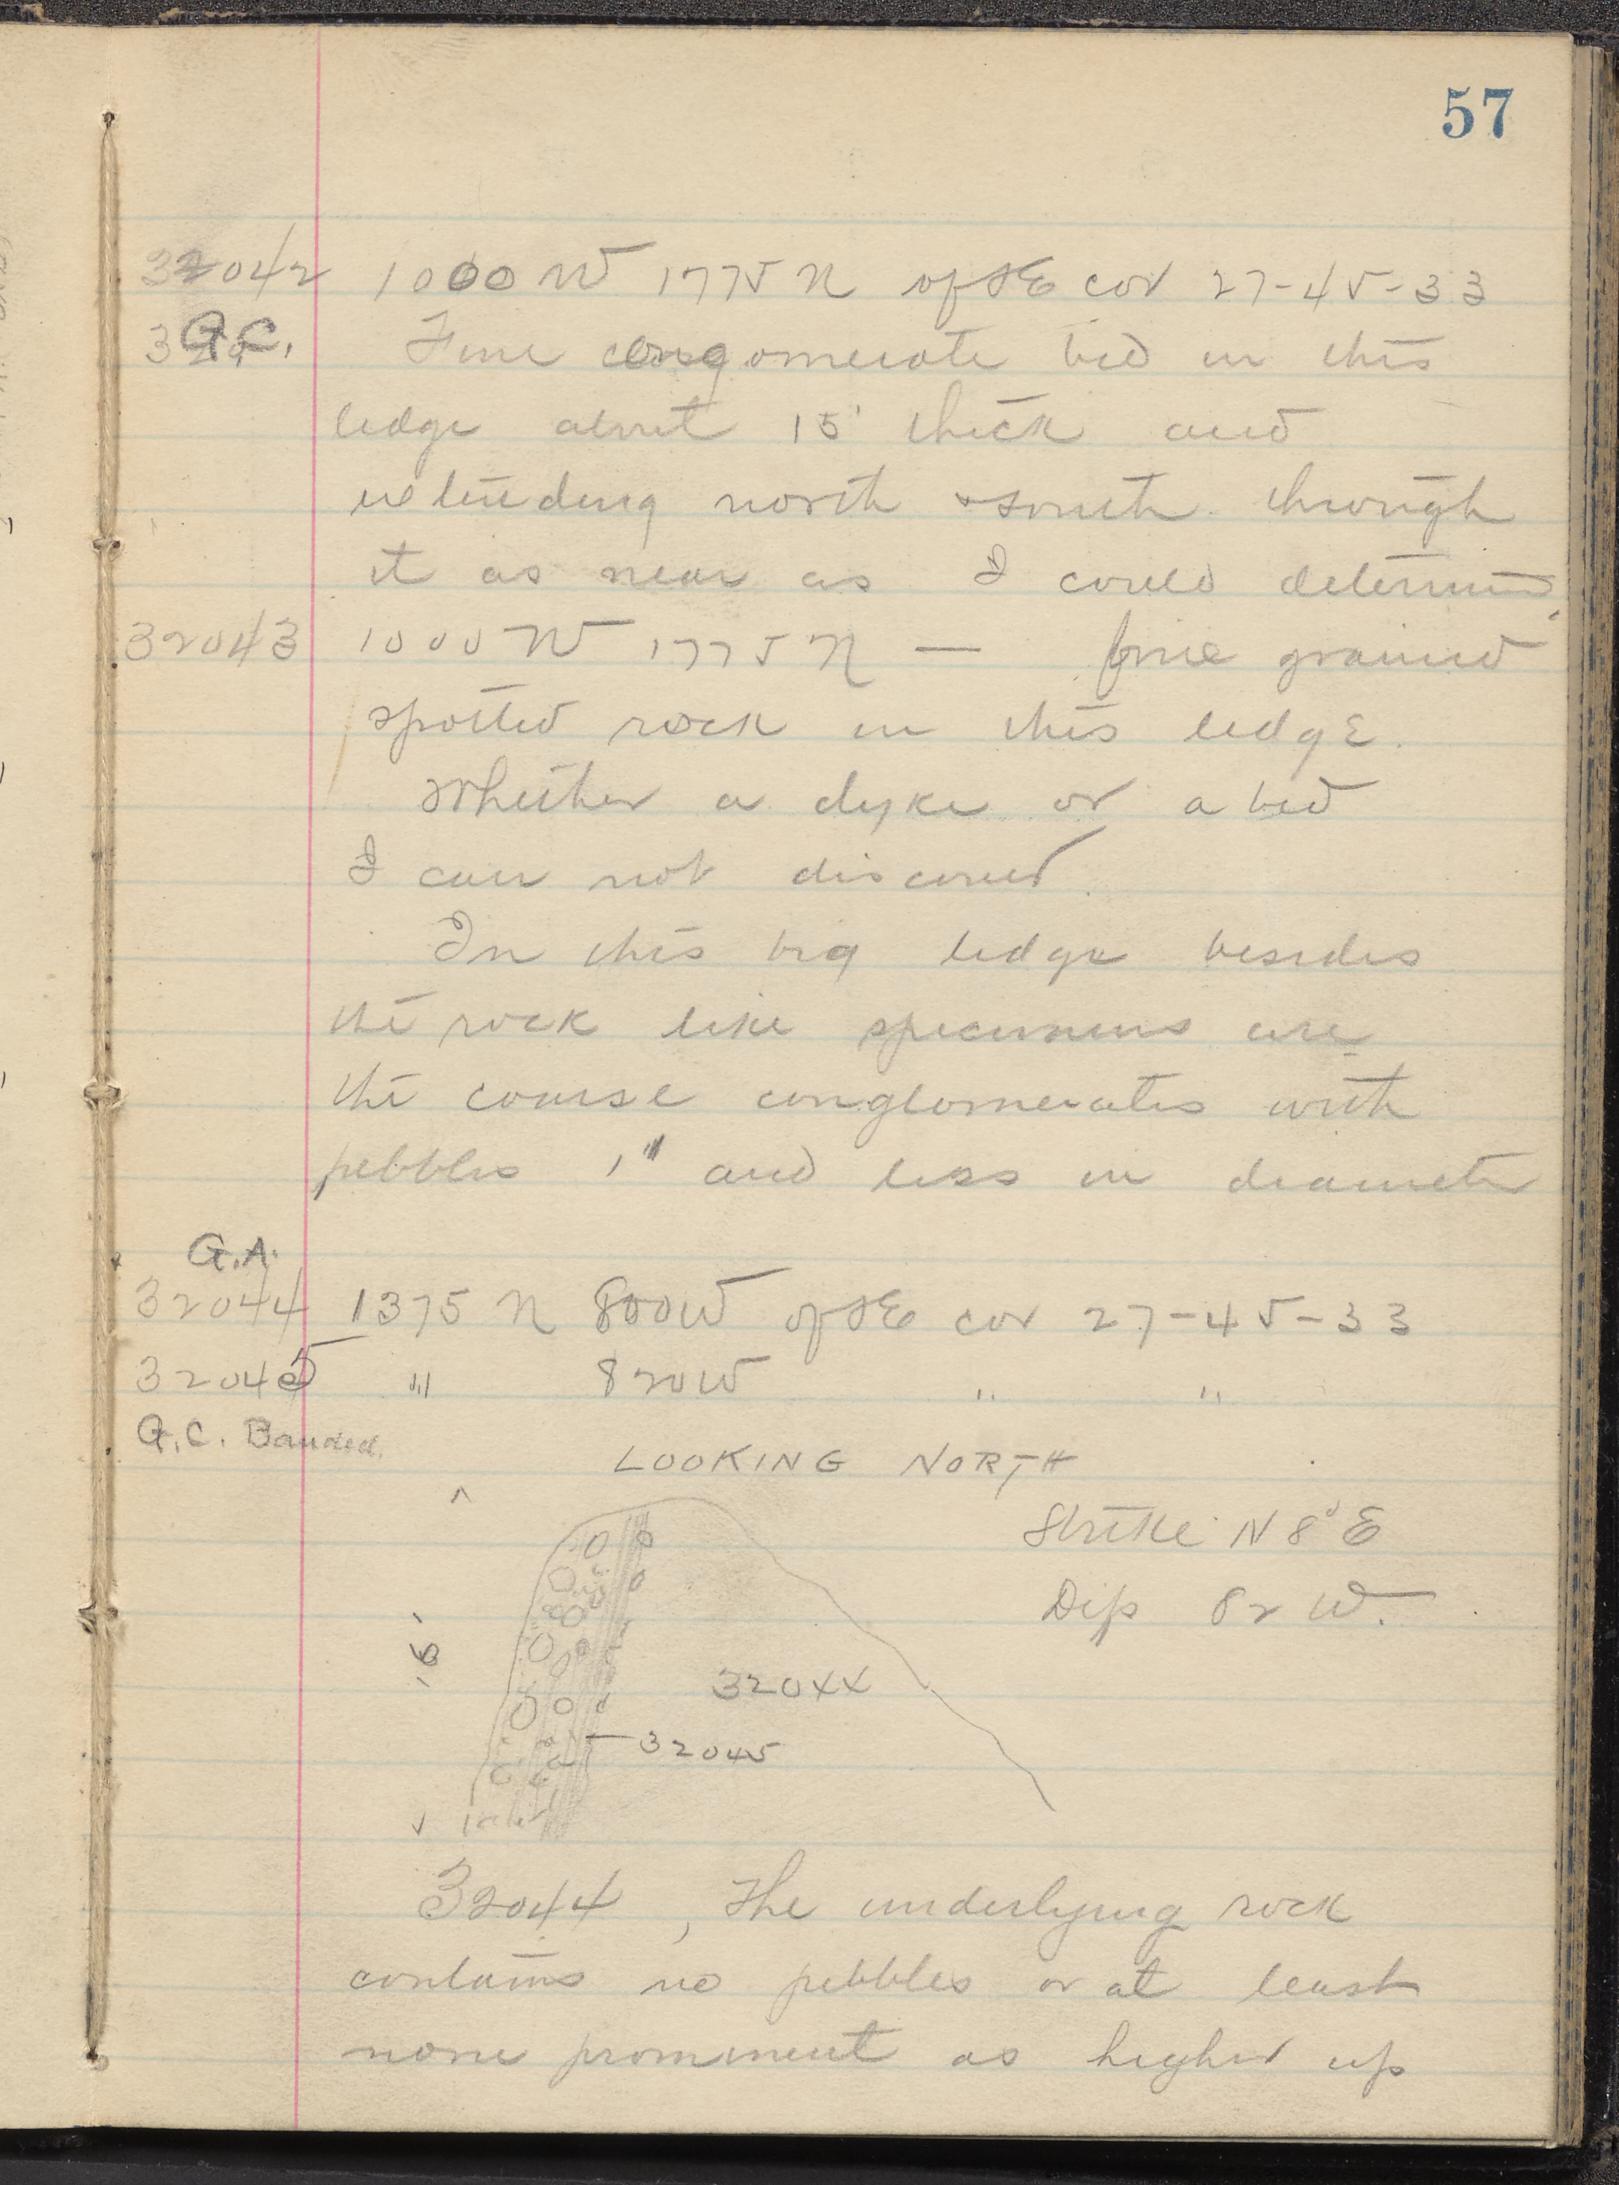 57
32042 1000 W 1775 N of SE cor 27-45-33
G.C. Fine congomerate bed in this
ledge about 15' thick and
extending north & south through
it as near as I could determine
32043 1000 W 1775 N — fine grained
spotted rock in this ledge.
Whether a dyke or a bed
I can not discover.
In this big ledge besides
the rock like specimens are
the coarse conglomerates with
pebbles 1" and less in diameter
G.A.
32044 1375 N 800W of SE cor 27-45-33
32045 " 820W " "
G.C. Banded.
LOOKING NORTH
Strike N 8° E
Dip 82 W.
32044
32045
32044, The underlying rock
contains no pebbles or at least
none prominent as higher up